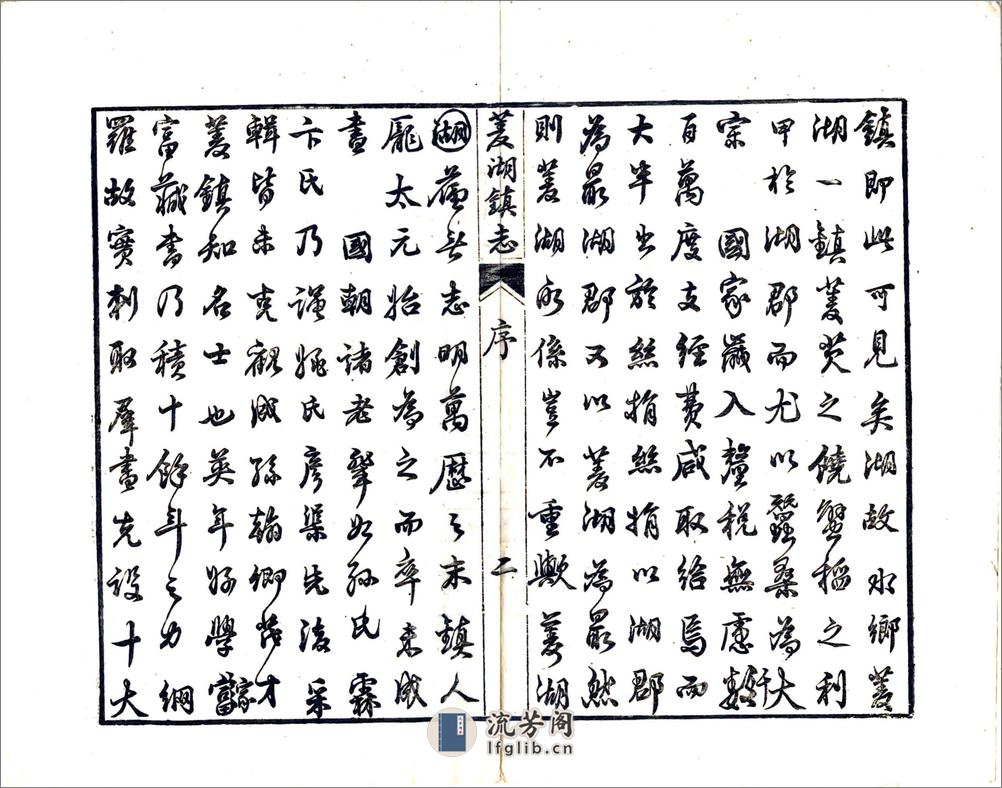 鎮即此可見矣湖故水鄉菱
湖一鎮菱芡之饒蟹稻之利
甲於湖郡而尤以蠶桑為大
宗 國家歲入釐稅無慮數十
百萬度支經費咸取給焉而
大半出於絲捐絲捐以湖郡
為最湖郡又以菱湖為最然
則菱湖所係豈不重歟菱湖
菱湖鎮志 序 二
湖舊無志明萬歷之末鎮人
龐太元始創為之而卒未成
書 國朝諸老輩如孫氏霖
卞氏乃謹姚氏彥渠先後采
輯皆未克觀成孫翰卿茂才
菱鎮知名士也英年好學家富
富藏書乃積十餘年之力網
羅故實刺取羣書先設十大
流芳阁
lfglib.cn